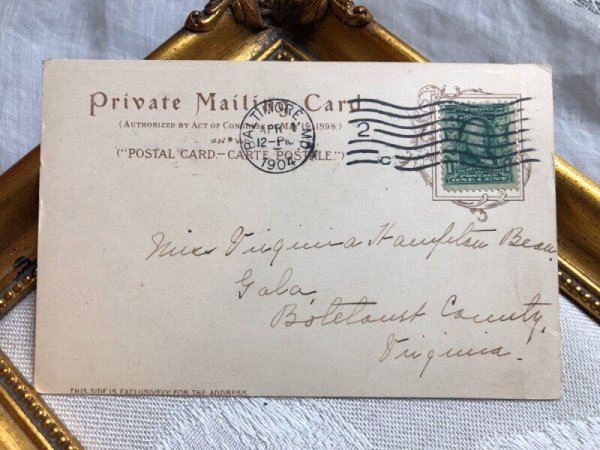 Private Mailing Card
(AUTHORIZED BY ACT OF CONGRESS OF MAY 19, 1898.)
("POSTAL CARD—CARTE POSTALE.")
BALTIMORE, MD.
APR
12-PM
1904
2
C
POSTAGE
ONE CENT
Miss Virginia Hampton Bean
Gala
Botetourt County,
Virginia.
THIS SIDE IS EXCLUSIVELY FOR THE ADDRESS